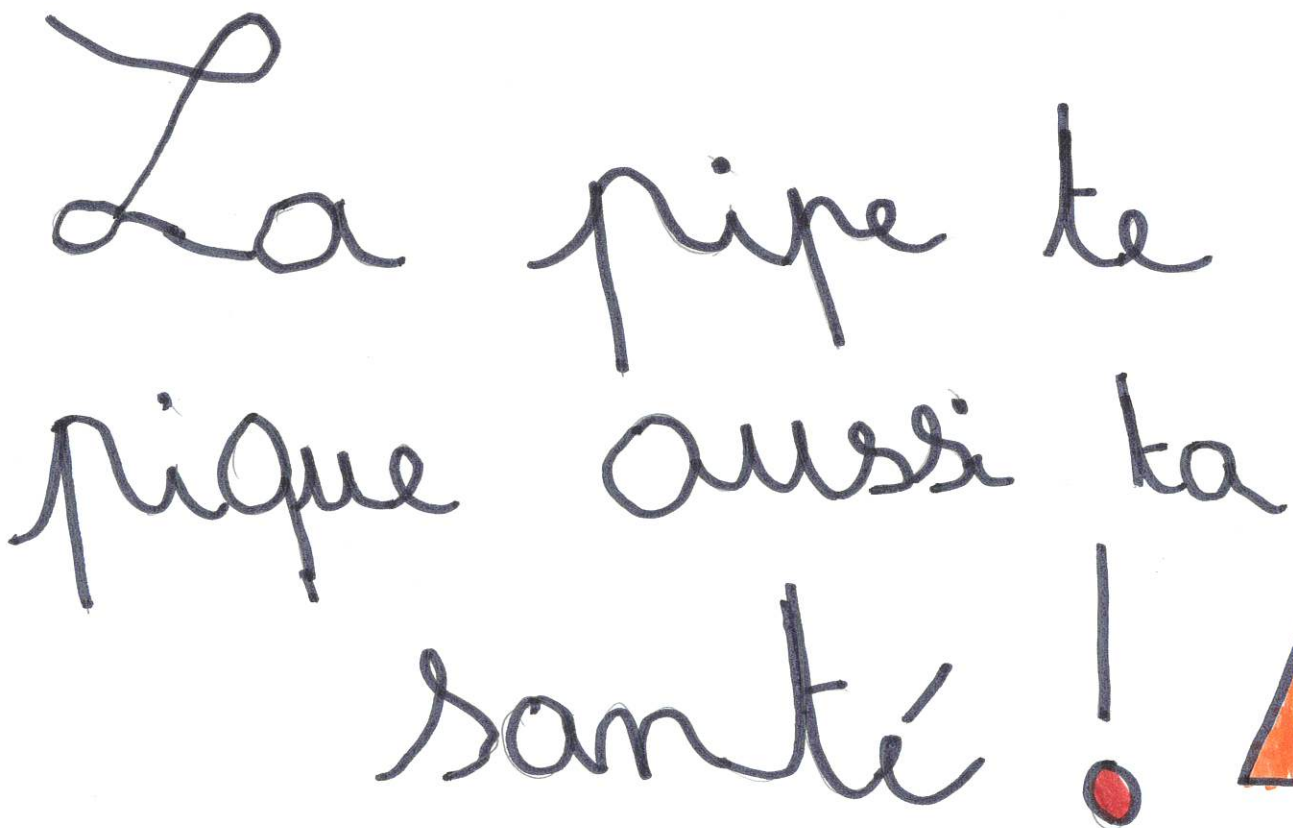 La pipe te
pique aussi ta
santé !